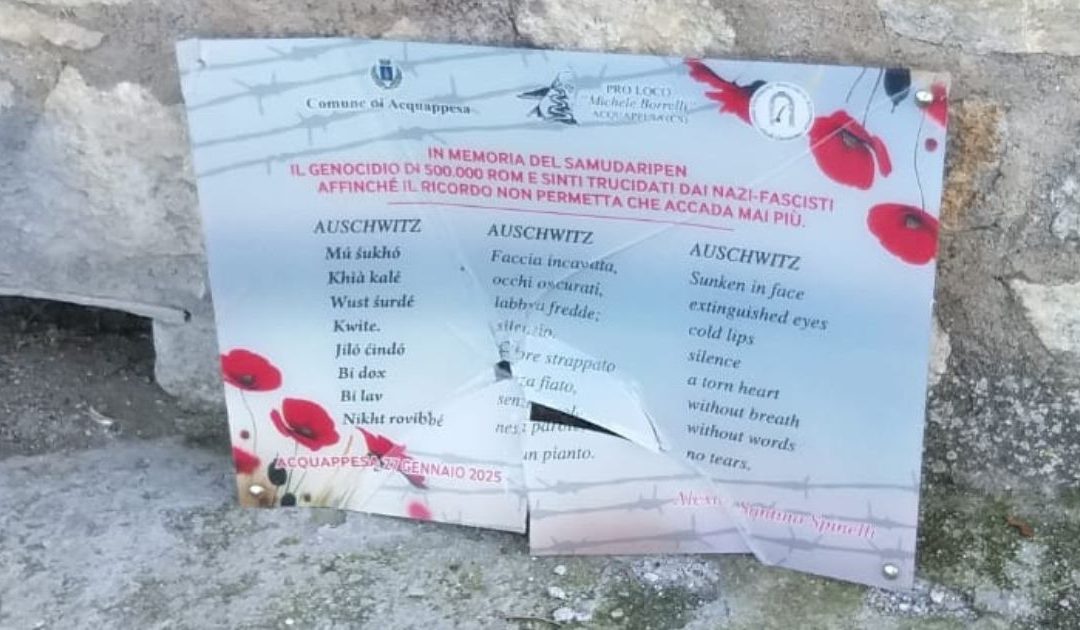 Comune di Acquappesa
PRO LOCO
"Michele Borrelli"
ACQUAPPESA (CS)
IN MEMORIA DEL SAMUDARIPEN
IL GENOCIDIO DI 500.000 ROM E SINTI TRUCIDATI DAI NAZI-FASCISTI
AFFINCHÉ IL RICORDO NON PERMETTA CHE ACCADA MAI PIÙ.
AUSCHWITZ
Mú śukhó
Khià kalé
Wust śurdé
Kwite.
Jiló ćindó
Bi dox
Bi lav
Nikht rovibbé
AUSCHWITZ
Faccia incavata,
occhi oscurati,
labbra fredde;
silenzio.
strappato
fiato,
un pianto.
AUSCHWITZ
Sunken in face
extinguished eyes
cold lips
silence
a torn heart
without breath
without words
no tears.
ACQUAPPESA 27 GENNAIO 2025
Santino Spinelli